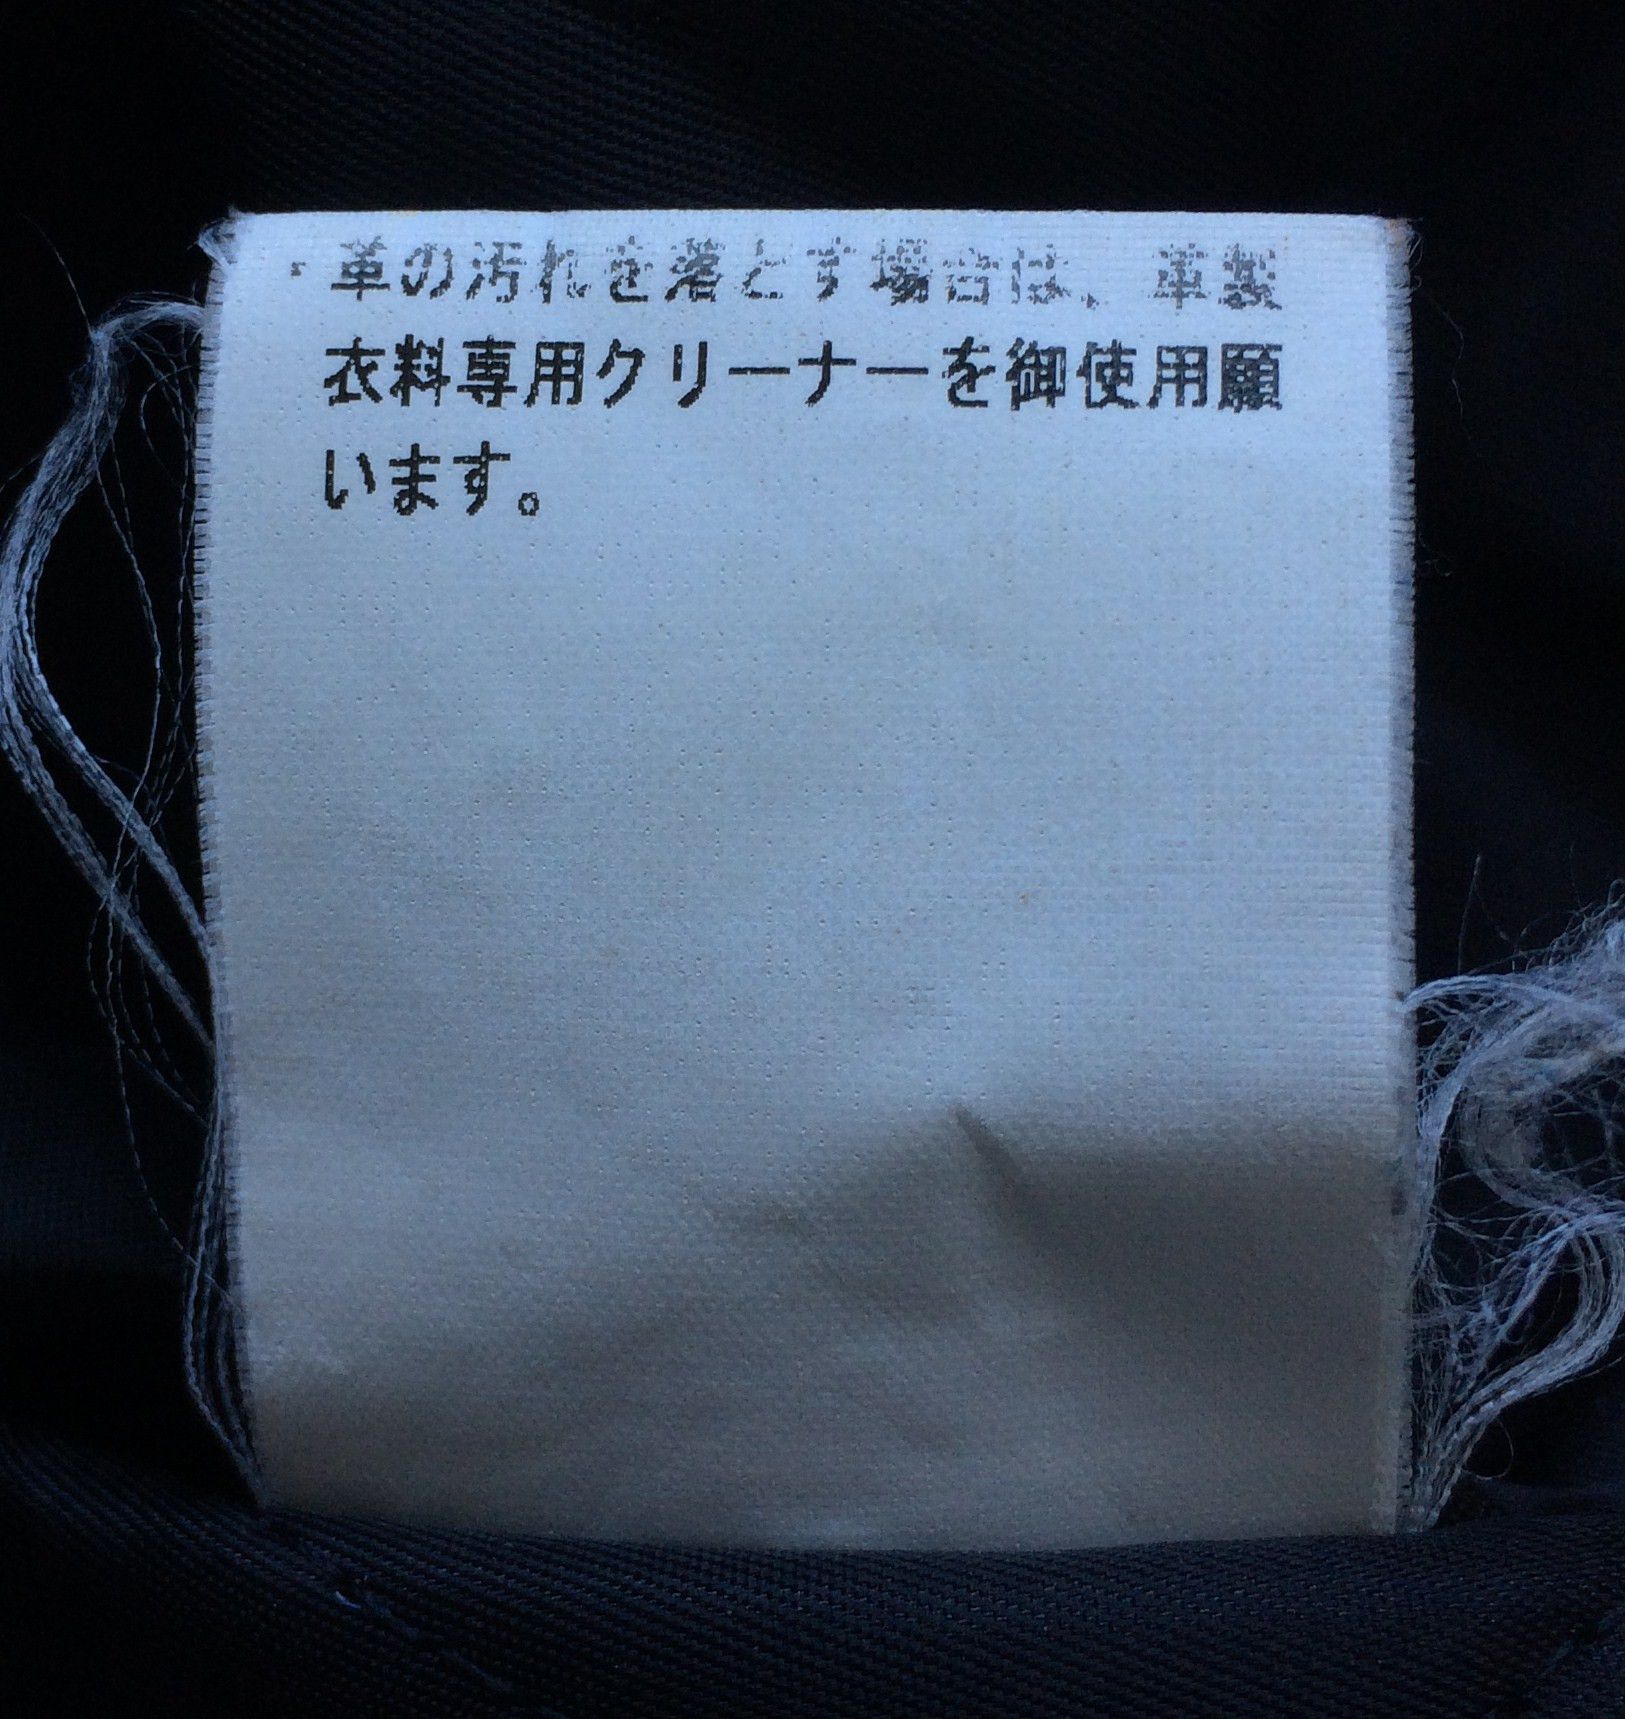 ・革の汚れを落とす場合は、革製
衣料専用クリーナーを御使用願
います。